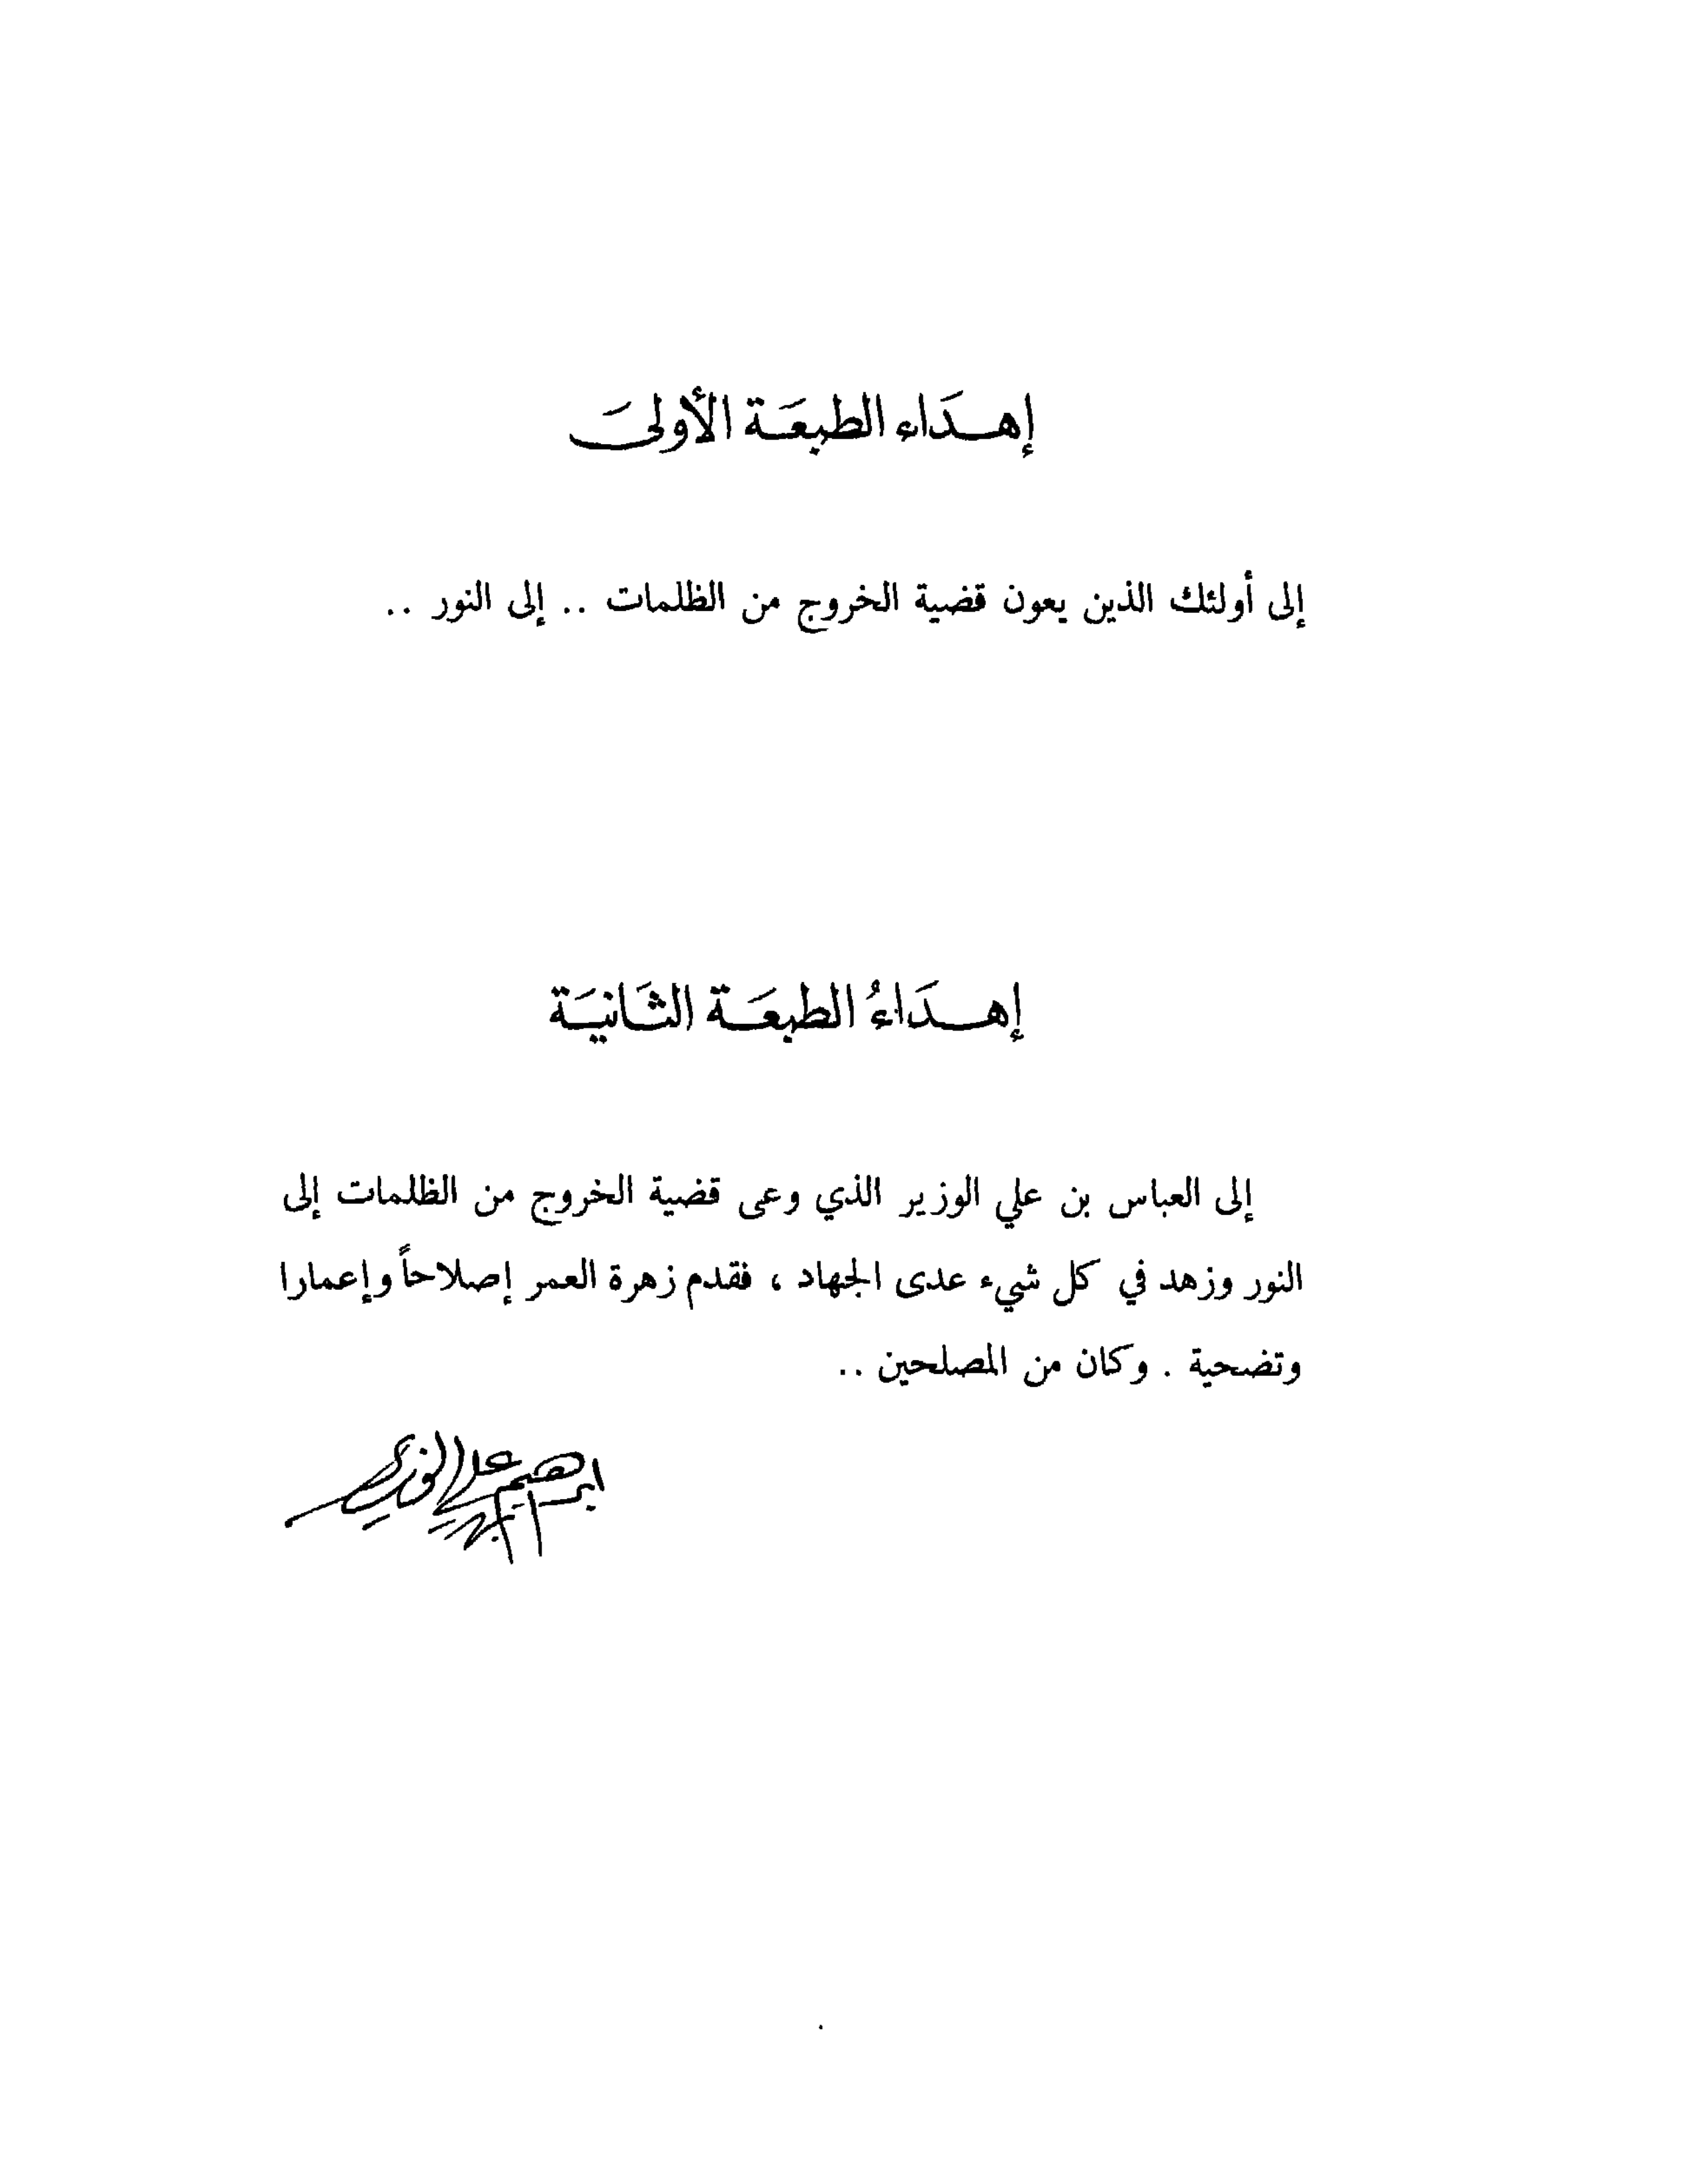 إهداء الطبعة الأولى
إلى أولئك الذين يعون قضية الخروج من الظلمات .. إلى النور ..
إهداءُ الطبعة الثانية
إلى العباس بن علي الوزير الذي وعى قضية الخروج من الظلمات إلى
النور وزهد في كل شيء عدى الجهاد ، فقدم زهرة العمر إصلاحاً وإعمارا
وتضحية . وكان من المصلحين ..
ابرهيم علي الوزير